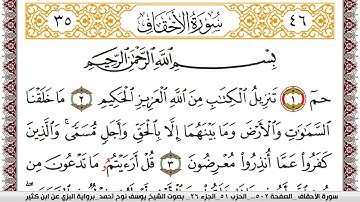 ٣٥ سُورَةُ الأَحْقَافِ ٤٦
بِسْمِ اللَّهِ الرَّحْمَٰنِ الرَّحِيمِ
حمٓ ١ تَنزِيلُ الْكِتَٰبِ مِنَ اللَّهِ الْعَزِيزِ الْحَكِيمِ ٢ مَا خَلَقْنَا
السَّمَٰوَٰتِ وَالْأَرْضَ وَمَا بَيْنَهُمَا إِلَّا بِالْحَقِّ وَأَجَلٍ مُّسَمًّى ۚ وَالَّذِينَ
كَفَرُوا عَمَّا أُنذِرُوا مُعْرِضُونَ ٣ قُلْ أَرَءَيْتُمُ مَا تَدْعُونَ مِن
سورة الأحقاف _ الصفحة ٥٠٢ _ الحزب ٥١ _ الجزء ٢٦ _ بصوت الشيخ يوسف نوح أحمد _ برواية البزي عن ابن كثير